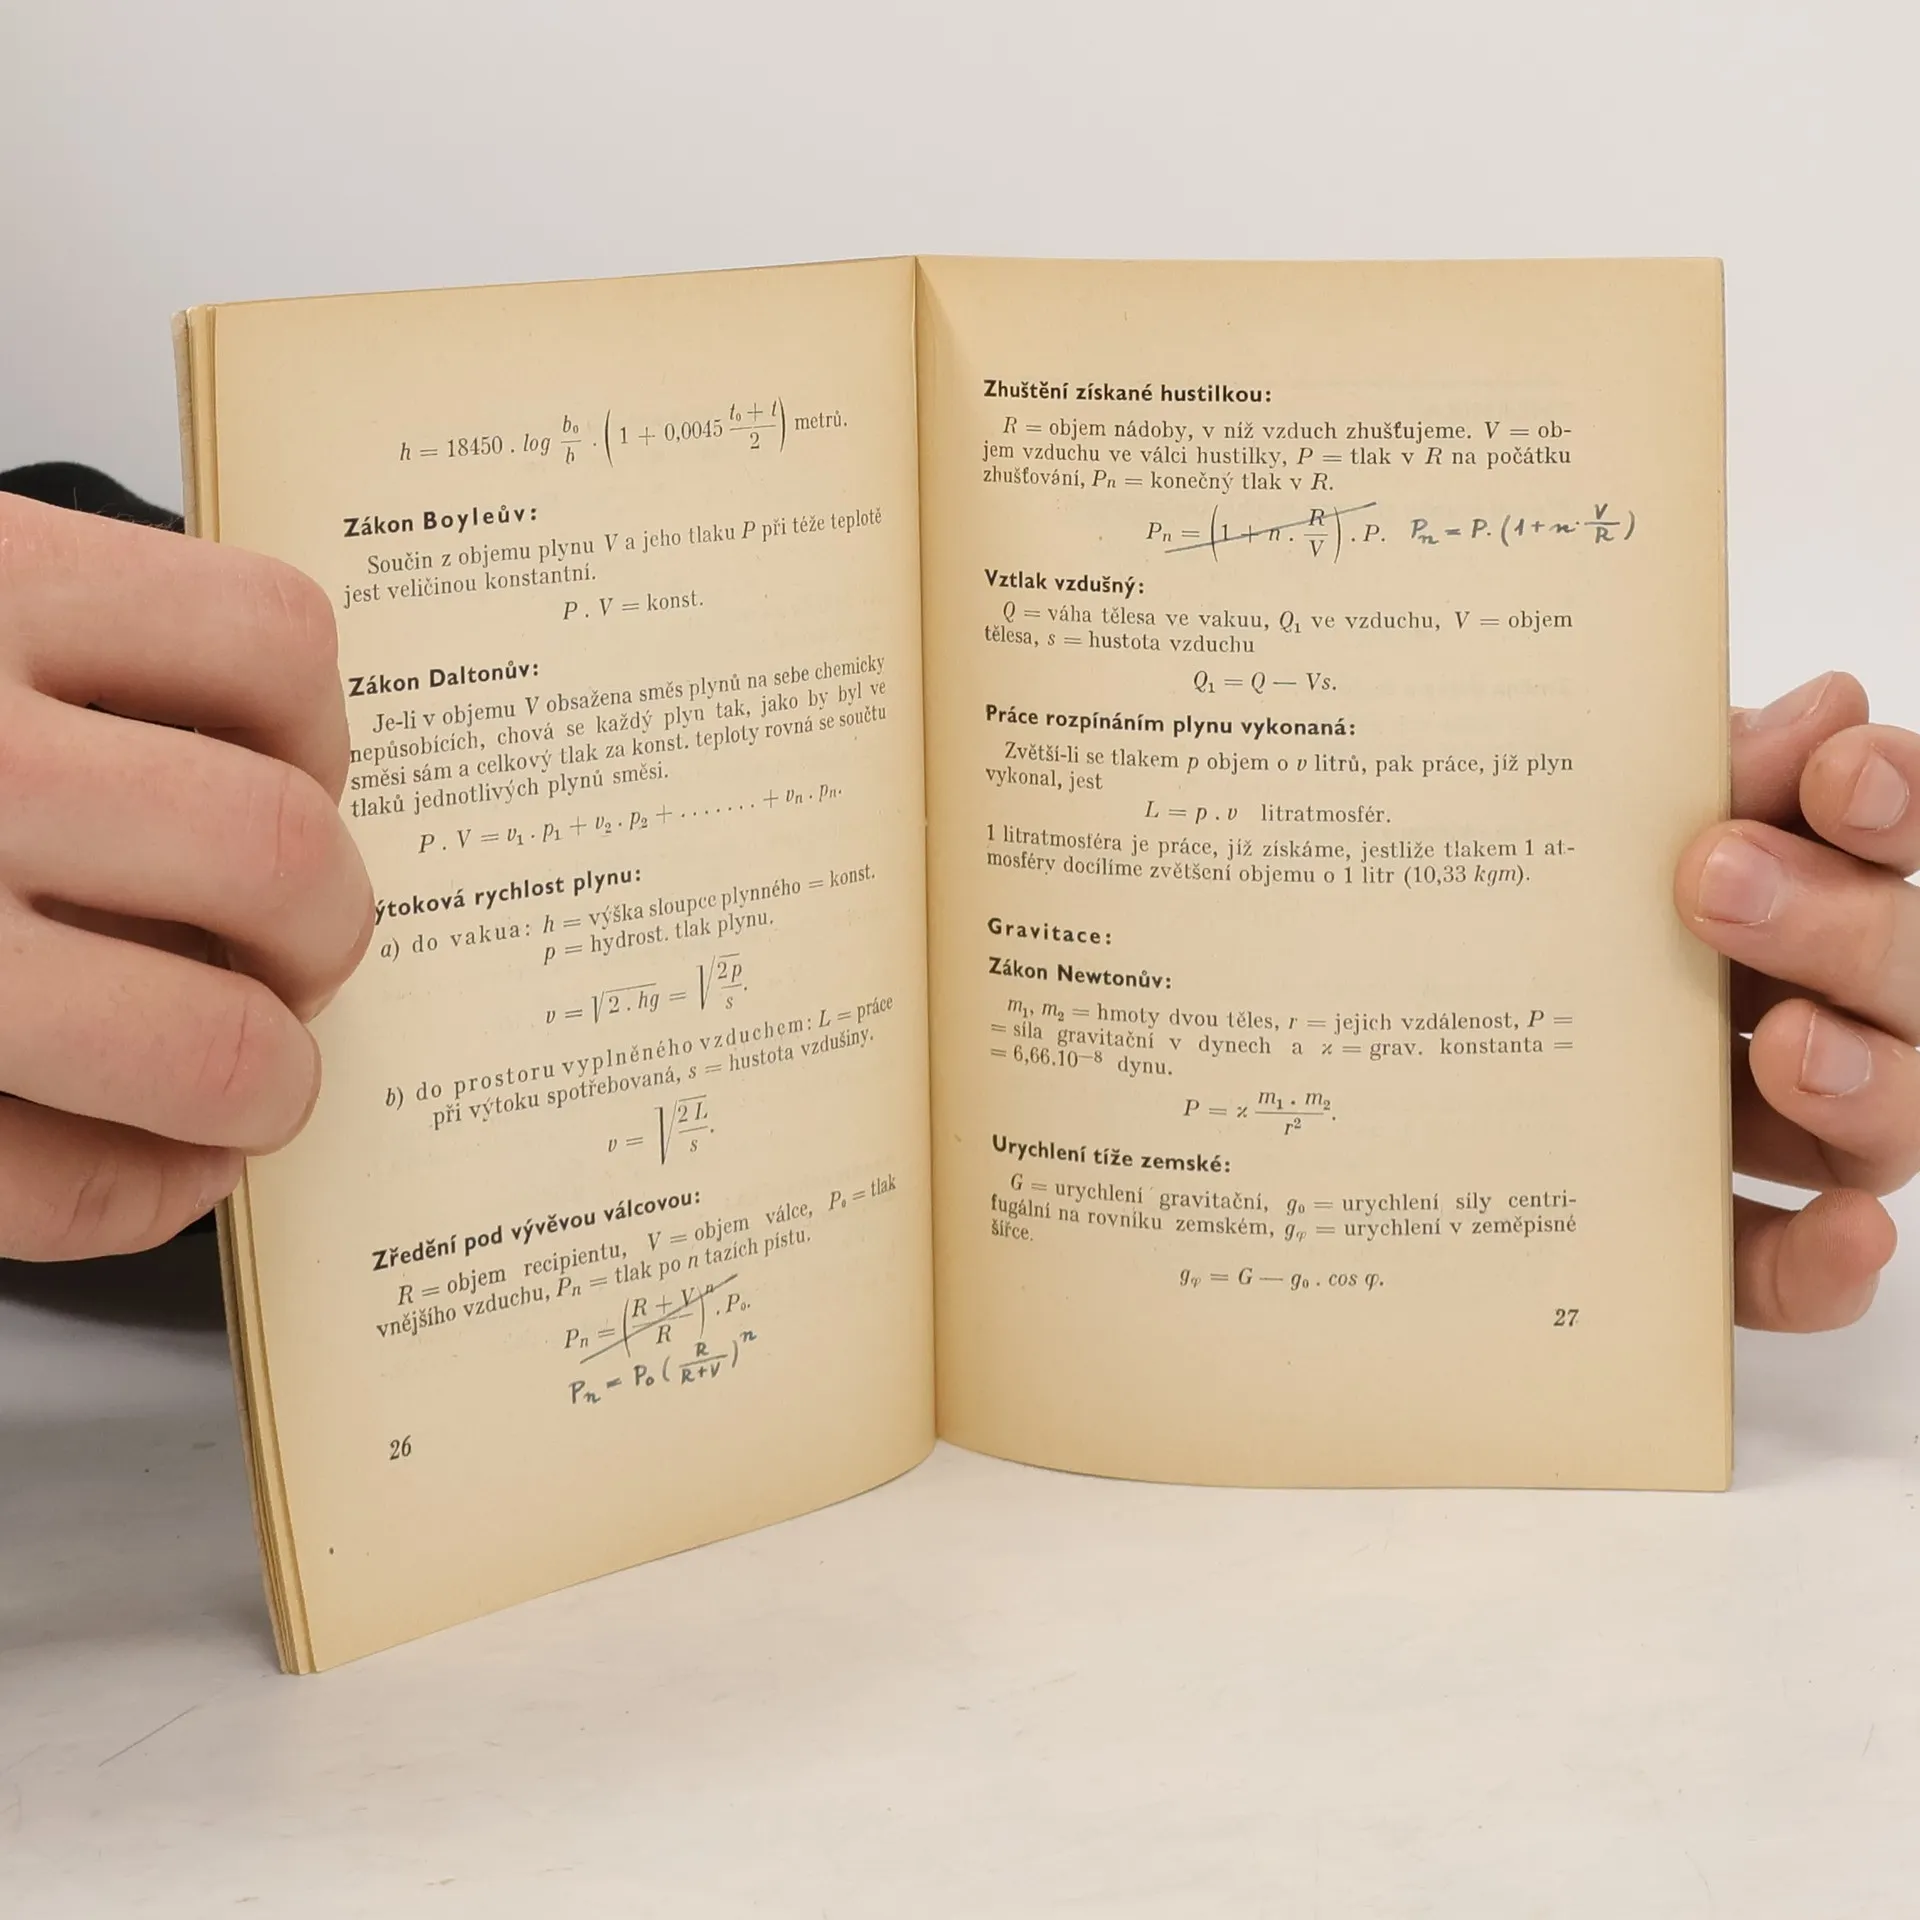 h = 18450 . log b₀/b . (1 + 0,0045 (t₀ + t)/2) metrů.
Zákon Boyleův:
Součin z objemu plynu V a jeho tlaku P při téže teplotě
jest veličinou konstantní.
P . V = konst.
Zákon Daltonův:
Je-li v objemu V obsažena směs plynů na sebe chemicky
nepůsobících, chová se každý plyn tak, jako by byl ve
směsi sám a celkový tlak za konst. teploty rovná se součtu
tlaků jednotlivých plynů směsi.
P . V = v₁ . p₁ + v₂ . p₂ + ....... + vₙ . pₙ.
ýtoková rychlost plynu:
a) do vakua: h = výška sloupce plynného = konst.
p = hydrost. tlak plynu.
v = √(2 . hg) = √(2p/s).
b) do prostoru vyplněného vzduchem: L = práce
při výtoku spotřebovaná, s = hustota vzdušiny.
v = √(2 L/s).
Zředění pod vývěvou válcovou:
R = objem recipientu, V = objem válce, P₀ = tlak
vnějšího vzduchu, Pₙ = tlak po n tazích pístu.
Pₙ = ((R + V)/R)ⁿ . P₀.
Pₙ = P₀ (R/(R+V))ⁿ
26
Zhuštění získané hustilkou:
R = objem nádoby, v níž vzduch zhušťujeme. V = ob-
jem vzduchu ve válci hustilky, P = tlak v R na počátku
zhušťování, Pₙ = konečný tlak v R.
Pₙ = (1 + n . R/V) . P. Pₙ = P. (1 + n · V/R)
Vztlak vzdušný:
Q = váha tělesa ve vakuu, Q₁ ve vzduchu, V = objem
tělesa, s = hustota vzduchu
Q₁ = Q — Vs.
Práce rozpínáním plynu vykonaná:
Zvětší-li se tlakem p objem o v litrů, pak práce, jíž plyn
vykonal, jest
L = p . v litratmosfér.
1 litratmosféra je práce, jíž získáme, jestliže tlakem 1 at-
mosféry docílíme zvětšení objemu o 1 litr (10,33 kgm).
Gravitace:
Zákon Newtonův:
m₁, m₂ = hmoty dvou těles, r = jejich vzdálenost, P =
= síla gravitační v dynech a ϰ = grav. konstanta =
= 6,66.10⁻⁸ dynu.
P = ϰ (m₁ . m₂)/r².
Urychlení tíže zemské:
G = urychlení gravitační, g₀ = urychlení síly centri-
fugální na rovníku zemském, gφ = urychlení v zeměpisné
šířce.
gφ = G — g₀ . cos φ.
27